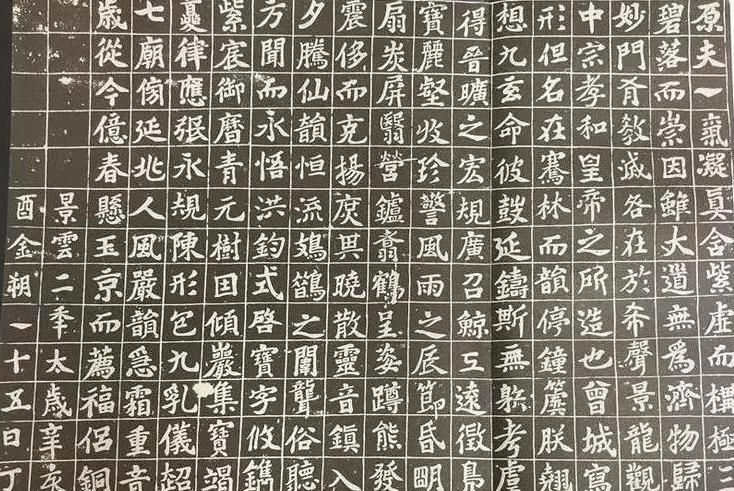 原夫一氣凝真含紫虛而構極三
碧落而崇因雖大道無為濟物歸
妙門有教滅咎在於希聲景龍觀
中宗孝和皇帝之所造也曾城寫
形但名在騫林而韻停鐘簴朕翹
想九玄命彼鼓延鑄斯無射考虞
得晉曠之宏規廣召鯨工遠徵鳧
寶麗壑收珍警風雨之辰節昏明
扇炭屏翳營鑪翥鶴呈姿蹲熊發
震侈而克揚庚其曉散靈音鎮入
夕騰仙韻恒流鳷鵲之闈聾俗聽
方聞而永悟洪鈞式啓寶字攸鐫
紫宸御曆青元樹因傾巖集寶竭
夔律應張永規陳形包九乳儀超
七廟傍延兆人風嚴韻急霜重音
歲從今億春懸玉京而薦福侶銅
景雲二年太歲辛亥
酉金朔一十五日丁